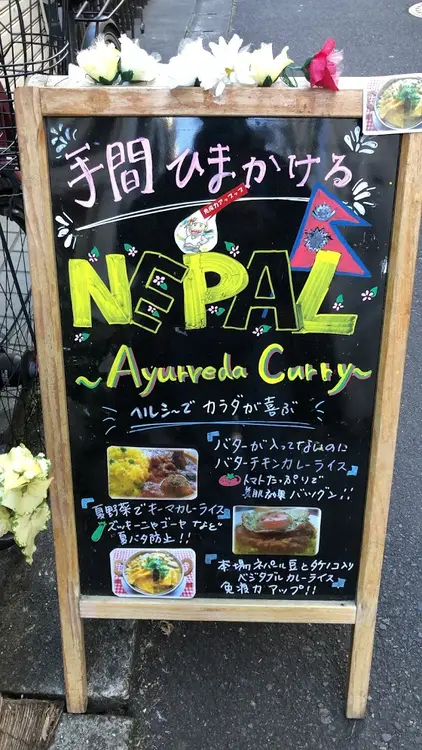 手間ひまかける
免疫力アップップ
NEPAL
～Ayurveda Curry～
ヘルシーで カラダが喜ぶ
バターが入ってないのに
バターチキンカレーライス
トマトたっぷりで
美肌効果バツグン!!
夏野菜でキーマカレーライス
ズッキーニやゴーヤ など
夏バタ防止!!
本場ネパール豆とタケノコ入り
ベジタブルカレーライス
免疫力 アップ!!